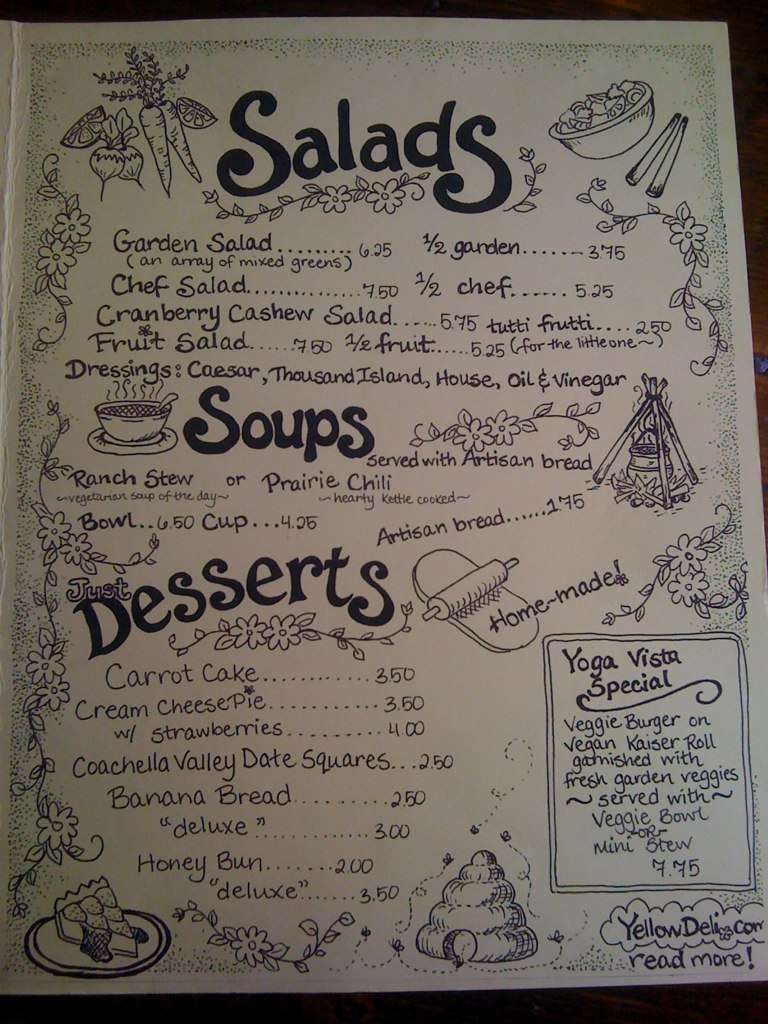 Salads
Garden Salad......... 6.25 ½ garden....... 3.75
(an array of mixed greens)
Chef Salad.............. 7.50 ½ chef...... 5.25
Cranberry Cashew Salad...... 5.75 tutti frutti.... 2.50
Fruit Salad..... 7.50 ½ fruit..... 5.25 (for the little one~)
Dressings: Caesar, Thousand Island, House, Oil & Vinegar
Soups
served with Artisan bread
Ranch Stew or Prairie Chili
~vegetarian soup of the day~ ~hearty kettle cooked~
Bowl..6.50 Cup...4.25
Artisan bread......1.75
Just Desserts
Home-made!
Carrot Cake............ 3.50
Cream Cheese Pie............ 3.50
w/ strawberries.......... 4.00
Coachella Valley Date Squares...2.50
Banana Bread........... 2.50
"deluxe"............ 3.00
Honey Bun....... 2.00
"deluxe"...... 3.50
Yoga Vista
Special
Veggie Burger on
Vegan Kaiser Roll
garnished with
fresh garden veggies
~ served with ~
Veggie Bowl
-OR-
Mini Stew
7.75
YellowDeli.com
read more!